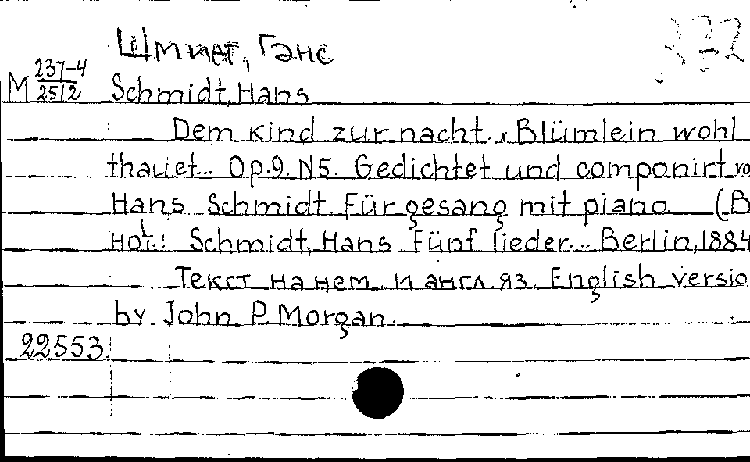 Шмидт, Ганс
M 237-4
2512 Schmidt, Hans
Dem kind zur nacht. „Blümlein wohl
thauet.. Op.9. N5. Gedichtet und componirt vo
Hans Schmidt. Für gesang mit piano (B
Hot.: Schmidt, Hans. Fünf lieder... Berlin, 1884
Текст на нем. и англ. яз. English versio
by John P. Morgan.
22553